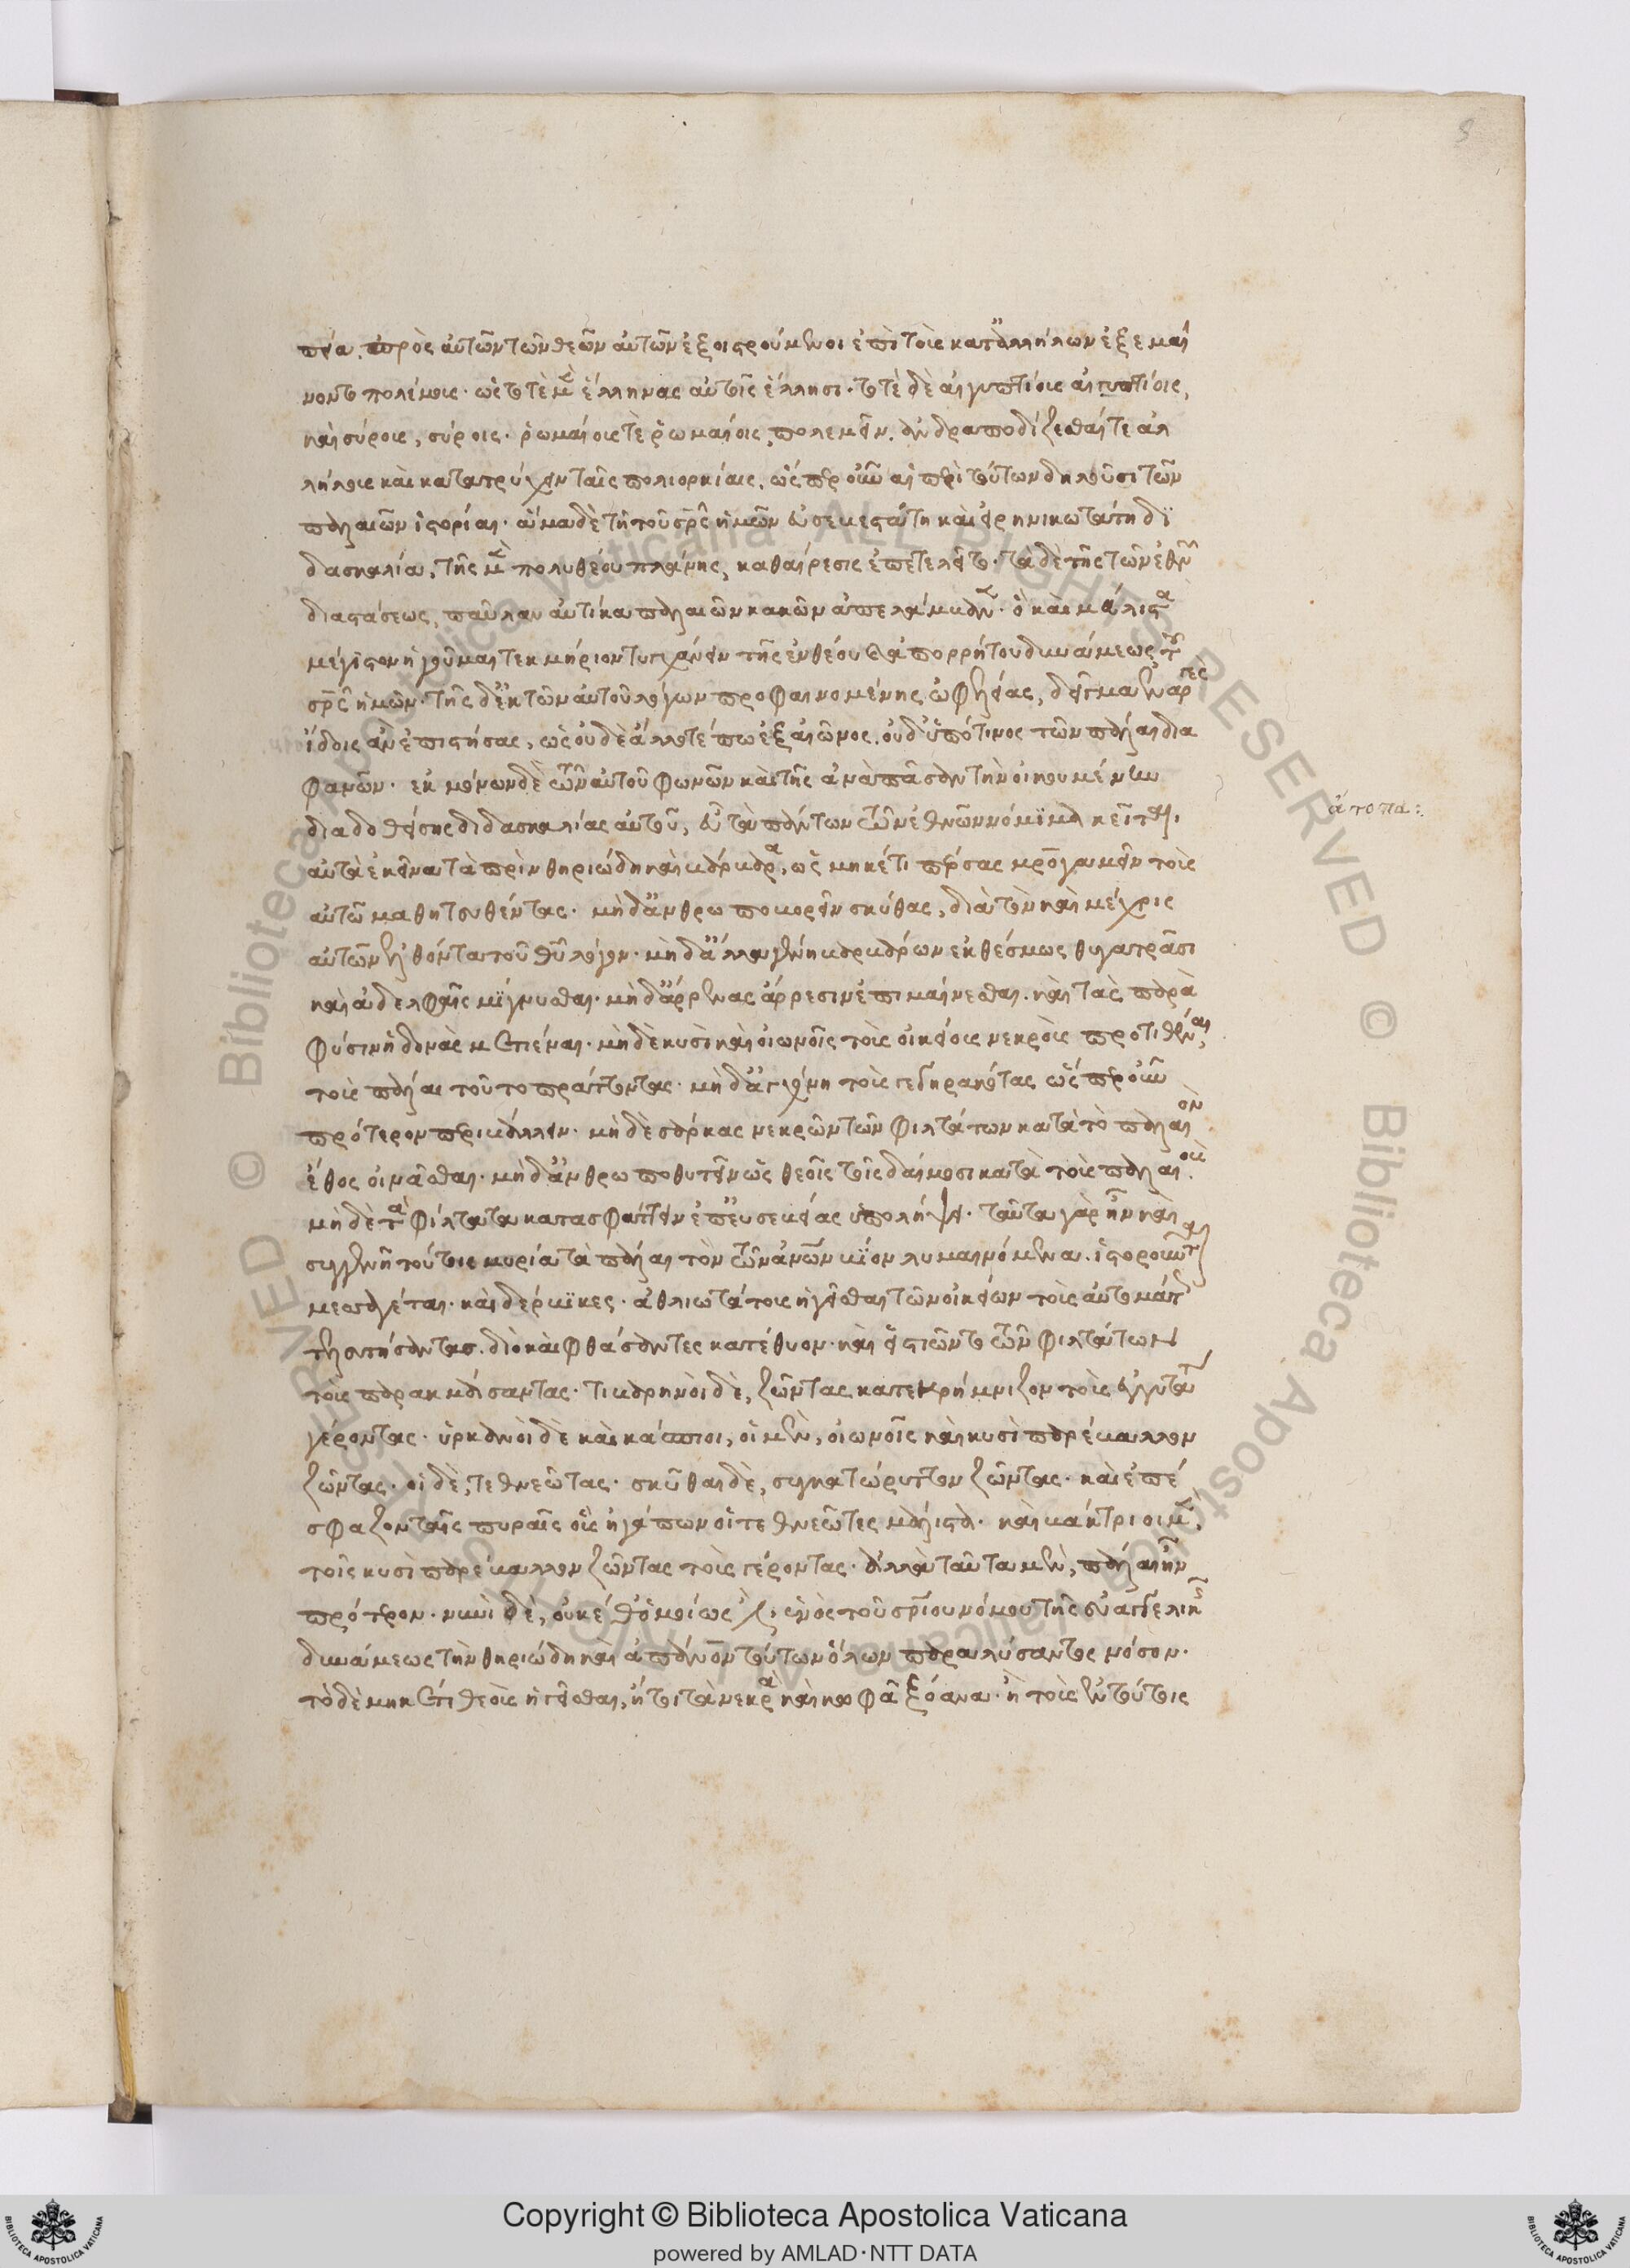 8
πεία. πρὸς αὐτῶν τῶν θεῶν αὐτῶν ἐξοιστρούμενοι ἐπὶ τοῖς κατ' ἀλλήλων ἐξεμαί
νοντο πολέμοις. ὡς τοτὲ μὲν ἕλληνας αὐτοῖς ἕλλησι. τοτὲ δὲ αἰγυπτίοις αἰγυπτίοις,
καὶ σύροις, σύροις. ῥωμαίοις τὲ ῥωμαίοις, πολεμεῖν. ἀνδραποδίζεσθαί τε ἀλ
λήλους καὶ κατατρύχειν ταῖς πολιορκίαις, ὥσπερ οὖν αἱ περὶ τούτων δηλοῦσι τῶν
παλαιῶν ἱστορίαι. ἅμα δὲ τῇ τοῦ σρς ἡμῶν εὐσεβεστάτῃ καὶ εἰρηνικωτάτῃ δι
δασκαλίᾳ, τῆς μὲν πολυθέου πλάνης, καθαίρεσις ἐπετελεῖτο. τὰ δὲ τῆς τῶν ἐθνῶν
διαστάσεως, παῦλαν αὐτίκα παλαιῶν κακῶν ἀπελάμβανεν. ὃ καὶ μάλιστα
μέγιστον ἡγοῦμαι τεκμήριον τυγχάνειν τῆς ἐνθέου καὶ ἀπορρήτου δυνάμεως τοῦ
σρς ἡμῶν. τῆς δ' ἐκ τῶν αὐτοῦ λόγων προφαινομένης ὠφελείας, δεῖγμα ἐναργὲς
ἴδοις ἂν ἐπιστήσας, ὡς οὐδὲ ἄλλοτέ πω ἐξ αἰῶνος. οὐδ' ὑπό τινος τῶν πάλαι δια
φανῶν. ἐκ μόνων δὲ τῶν αὐτοῦ φωνῶν καὶ τῆς ἀνὰ πᾶσαν τὴν οἰκουμένην
διαδοθείσης διδασκαλίας αὐτοῦ, εὖ τὰ πάντων τῶν ἐθνῶν νόμιμα κεῖται.
αὐτὰ ἐκεῖνα τὰ πρὶν θηριώδη καὶ βάρβαρα, ὡς μηκέτι πέρσας μητρογαμεῖν τοὺς
αὐτῷ μαθητευθέντας. μὴ δ' ἀνθρωποβορεῖν σκύθας, διὰ τὸν καὶ μέχρις
αὐτῶν ἐλθόντα τοῦ χυ λόγον. μὴ δ' ἄλλα γένη βαρβάρων ἐκθέσμως θυγατράσι
καὶ ἀδελφαῖς μίγνυσθαι. μὴ δ' ἄρρενας ἄρρεσιν ἐπιμαίνεσθαι. καὶ τὰς παρὰ
φύσιν ἡδονὰς μετιέναι. μὴ δὲ κυσὶ καὶ οἰωνοῖς τοὺς οἰκείους νεκροὺς προτιθέναι,
τοὺς πάλαι τοῦτο πράττοντας. μὴ δ' ἀγχόνῃ τοὺς γεγηρακότας ὥσπερ οὖν
πρότερον περιβάλλειν. μὴ δὲ σάρκας νεκρῶν τῶν φιλτάτων κατὰ τὸ παλαιὸν
ἔθος θοινᾶσθαι. μὴ δ' ἀνθρωποθυτεῖν ὡς θεοῖς τοῖς δαίμοσι κατὰ τοὺς παλαιούς.
μὴ δὲ τὰ φίλτατα κατασφάττειν ἐπ' εὐσεβείας ὑπολήψει. ταῦτα γὰρ ἦν καὶ
συγγενῆ τούτοις μυρία τὰ πάλαι τὸν τῶν ἀνων βίον λυμαινόμενα. ἱστοροῦνται
μεσαγέται. καὶ δέρβικες. ἀθλιωτάτους ἡγεῖσθαι τῶν οἰκείων τοὺς αὐτομάτως
τελευτήσαντας. διὸ καὶ φθάσαντες κατέθυον. καὶ εἱστιῶντο τῶν φιλτάτων
τοὺς παρακμάσαντας. τιβαρηνοὶ δὲ, ζῶντας κατεκρήμνιζον τοὺς ἐγγυτάτω
γέροντας. ὑρκανοὶ δὲ καὶ κάσπιοι, οἱ μὲν, οἰωνοῖς καὶ κυσὶ παρέβαλλον
ζῶντας. οἱ δὲ, τεθνεῶτας. σκύθαι δὲ, συγκατώρυττον ζῶντας. καὶ ἐπέ
σφαζον ταῖς πυραῖς οὓς ἠγάπων οἱ τεθνεῶτες μάλιστα. καὶ βάκτριοι μὲν,
τοῖς κυσὶ παρέβαλλον ζῶντας τοὺς γέροντας. ἀλλὰ ταῦτα μὲν, πάλαι ἦν
πρότερον. νυνὶ δὲ, οὐκέθ' ὁμοίως, ἑνὸς τοῦ σρίου νόμου τῆς εὐαγγελικῆς
δυνάμεως τὴν θηριώδη καὶ ἀπάνθρωπον τούτων ὅλων παραλύσαντος νόσον.
τὸ δὲ μηκέτι θεοὺς ἡγεῖσθαι, ἤτοι τὰ νεκρὰ καὶ κωφὰ ξόανα. ἢ τοὺς ἐν τούτοις
ἄτοπα:
Copyright © Biblioteca Apostolica Vaticana
powered by AMLAD·NTT DATA